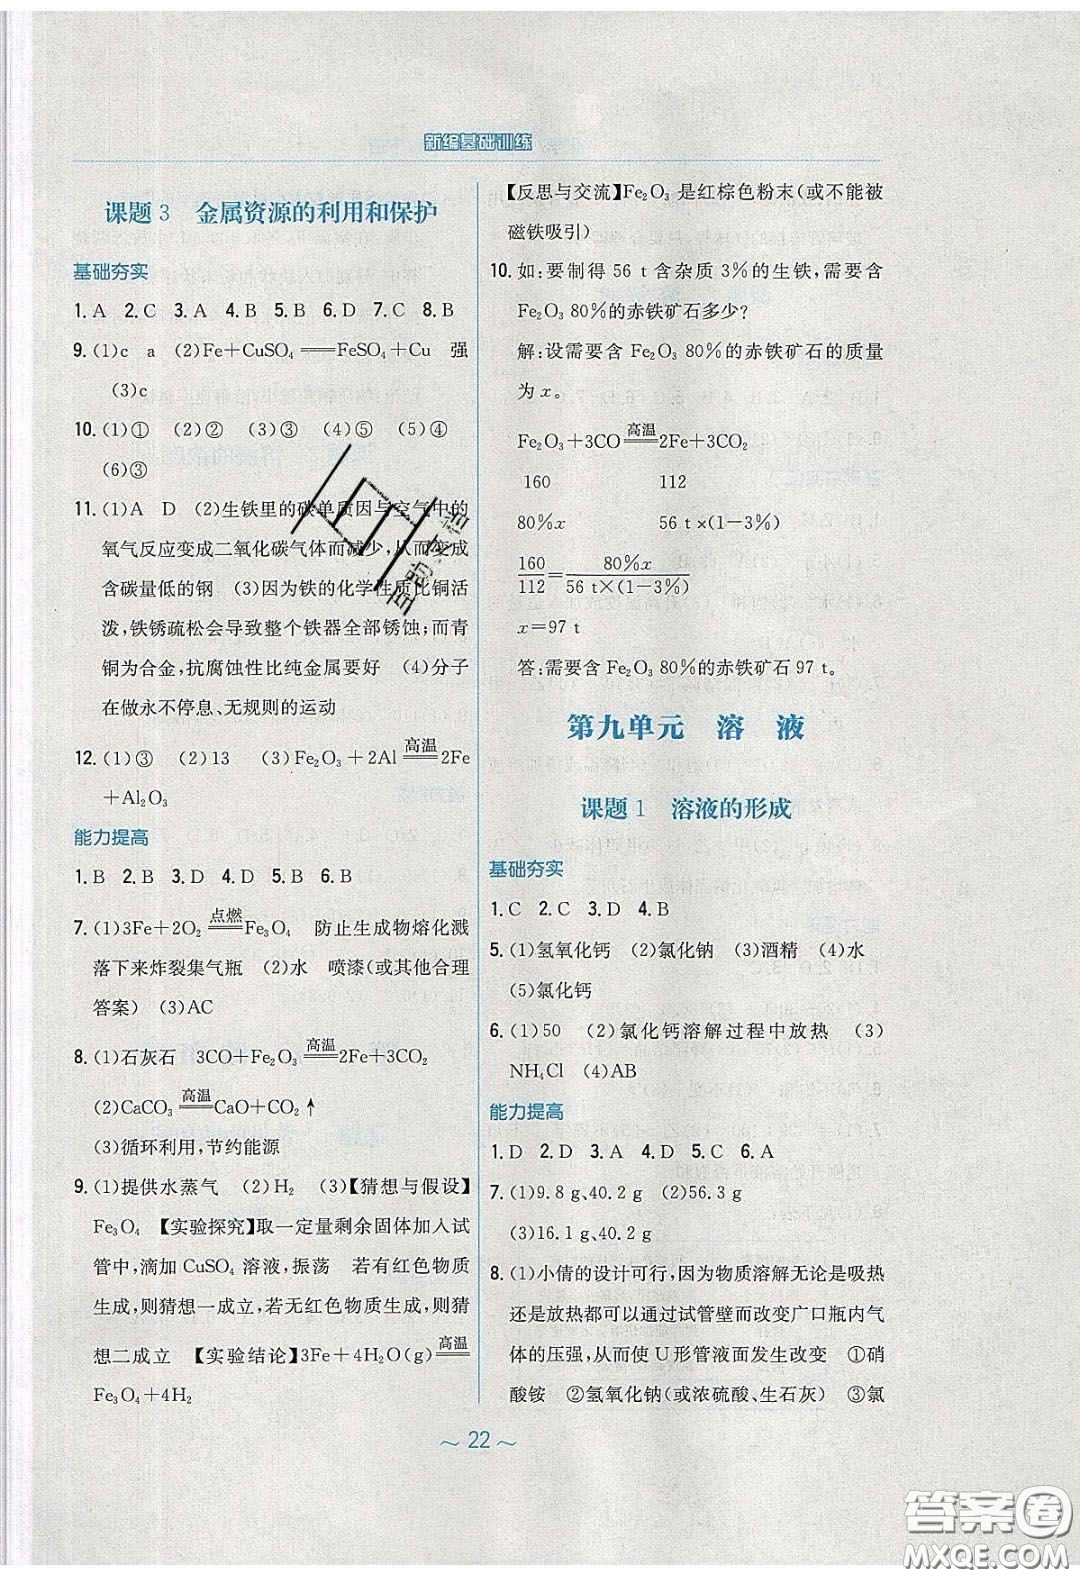 新编基础训练
课题 3 金属资源的利用和保护
基础夯实
1. A 2. C 3. A 4. B 5. B 6. D 7. C 8. B
9. (1)c a (2)Fe+CuSO₄══FeSO₄+Cu 强
(3)c
10. (1)① (2)② (3)③ (4)⑤ (5)④
(6)③
11. (1)A D (2)生铁里的碳单质因与空气中的
氧气反应变成二氧化碳气体而减少,从而变成
含碳量低的钢 (3)因为铁的化学性质比铜活
泼,铁锈疏松会导致整个铁器全部锈蚀;而青
铜为合金,抗腐蚀性比纯金属要好 (4)分子
在做永不停息、无规则的运动
12. (1)③ (2)13 (3)Fe₂O₃+2Al ══高温══ 2Fe
+Al₂O₃
能力提高
1. B 2. B 3. D 4. D 5. B 6. B
7. (1)3Fe+2O₂ ══点燃══ Fe₃O₄ 防止生成物熔化溅
落下来炸裂集气瓶 (2)水 喷漆(或其他合理
答案) (3)AC
8. (1)石灰石 3CO+Fe₂O₃ ══高温══ 2Fe+3CO₂
(2)CaCO₃ ══高温══ CaO+CO₂↑
(3)循环利用,节约能源
9. (1)提供水蒸气 (2)H₂ (3)【猜想与假设】
Fe₃O₄ 【实验探究】取一定量剩余固体加入试
管中,滴加 CuSO₄ 溶液,振荡 若有红色物质
生成,则猜想一成立,若无红色物质生成,则猜
想二成立 【实验结论】3Fe+4H₂O(g) ══高温══
Fe₃O₄+4H₂
【反思与交流】Fe₂O₃ 是红棕色粉末(或不能被
磁铁吸引)
10. 如:要制得 56 t 含杂质 3%的生铁,需要含
Fe₂O₃ 80%的赤铁矿石多少?
解:设需要含 Fe₂O₃ 80%的赤铁矿石的质量
为 x。
Fe₂O₃+3CO ══高温══ 2Fe+3CO₂
160 112
80%x 56 t×(1-3%)
160/112=80%x/56 t×(1-3%)
x=97 t
答:需要含 Fe₂O₃ 80%的赤铁矿石 97 t。
第九单元 溶 液
课题 1 溶液的形成
基础夯实
1. C 2. C 3. D 4. B
5. (1)氢氧化钙 (2)氯化钠 (3)酒精 (4)水
(5)氯化钙
6. (1)50 (2)氯化钙溶解过程中放热 (3)
NH₄Cl (4)AB
能力提高
1. D 2. D 3. A 4. D 5. C 6. A
7. (1)9.8 g、40.2 g (2)56.3 g
(3)16.1 g、40.2 g
8. (1)小倩的设计可行,因为物质溶解无论是吸热
还是放热都可以通过试管壁而改变广口瓶内气
体的压强,从而使 U 形管液面发生改变 ①硝
酸铵 ②氢氧化钠(或浓硫酸、生石灰) ③氯
~ 22 ~
答案圈
MXQE.COM